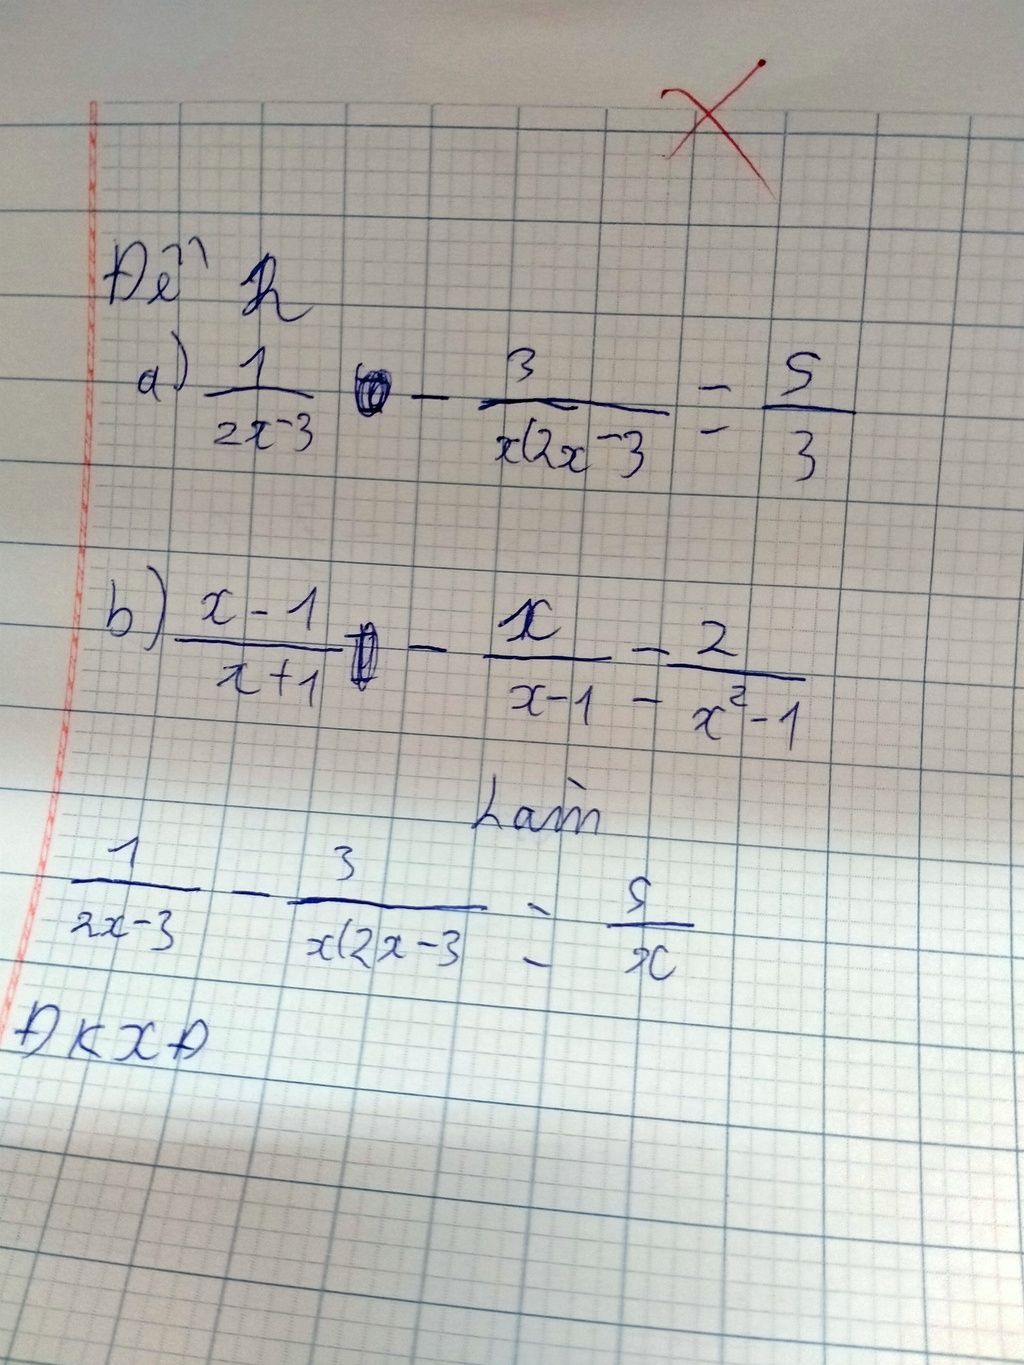 Đề 2
a) 1/(2x-3) - 3/(x(2x-3) = 5/3
b) (x-1)/(x+1) - x/(x-1) = 2/(x²-1)
Làm
1/(2x-3) - 3/(x(2x-3) = 5/x
ĐKXĐ